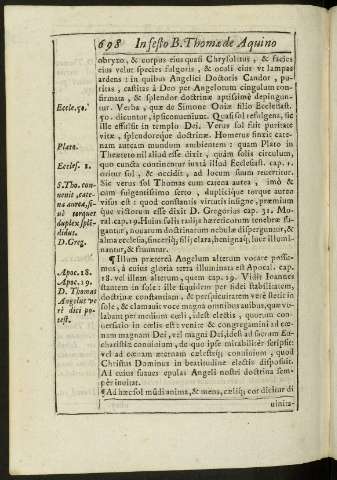 698 In festo B. Thomæ de Aquino
obryzo, & corpus eius quasi Chrysolitus, & facies
eius velut species fulguris, & oculi eius vt lampas
ardens: in quibus Angelici Doctoris Candor, pu-
ritas, castitas à Deo per Angelorum cingulum con-
firmata, & splendor doctrinæ aptissimè depingun-
Eccle.50. tur. Verba, quæ de Simone Oniæ filio Ecclesiast.
50. dicuntur, ipsi conueniunt. Quasi sol refulgens, sic
ille effulsit in templo Dei. Verus sol fuit puritate
vitæ, splendoreque doctrinæ. Homerus finxit cate-
nam auream mundum ambientem: quam Plato in
Plato. Theæteto nil aliud esse dixit, quàm solis circulum,
quo cuncta continentur iuxtà illud Ecclesiast. cap. 1.
Eccles. 1. oritur sol, & occidit, ad locum suum reuertitur.
Sic verus sol Thomas cum catena aurea, imò &
S.Tho.con- cum fulgentissimo serto, duplicique torque aureo
uenit, cate- visus est: quod constantis virtutis insigne, præmium
na aurea, si- que victorum esse dixit D. Gregorius cap. 31. Mo-
uè torques ral. cap. 19. Huius solis radijs hæreticorum tenebræ fu-
duplex splē- gantur, nouarum doctrinarum nebulæ disperguntur, &
didus. alma ecclesia, sinceriq; filij clara, benignaq; luce illumi-
D.Greg. nantur, & fruuntur.
¶ Illum prætereà Angelum alterum vocare possu-
mus, à cuius gloria terra illuminata est Apocal. cap.
Apoc.18. 18. vel illum alterum, quem cap. 19. Vidit Ioannes
Apoc.19. stantem in sole: ille siquidem per fidei stabilitatem,
D. Thomas doctrinæ constantiam, & perspicuitatem verè stetit in
Angelus ve sole, & clamauit voce magna omnibus auibus, quæ vo-
rè dici po- labant per medium cœli, idest electis, quorum con-
test. uersatio in cœlis est: venite & congregamini ad cœ-
nam magnam Dei, vel magni Dei, idest ad sacram Eu-
charistiæ conuiuium, de quo ipse mirabilitèr scripsit:
vel ad cœnam æternam cælestiq; conuiuium, quod
Christus Dominus in beatitudine electis disposuit.
Ad cuius suaues epulas Angeli nostri doctrina sem-
pèr inuitat.
¶ Ad hæc sol mūdi anima, & mens, cæliq; cor dicitur di
uinita-